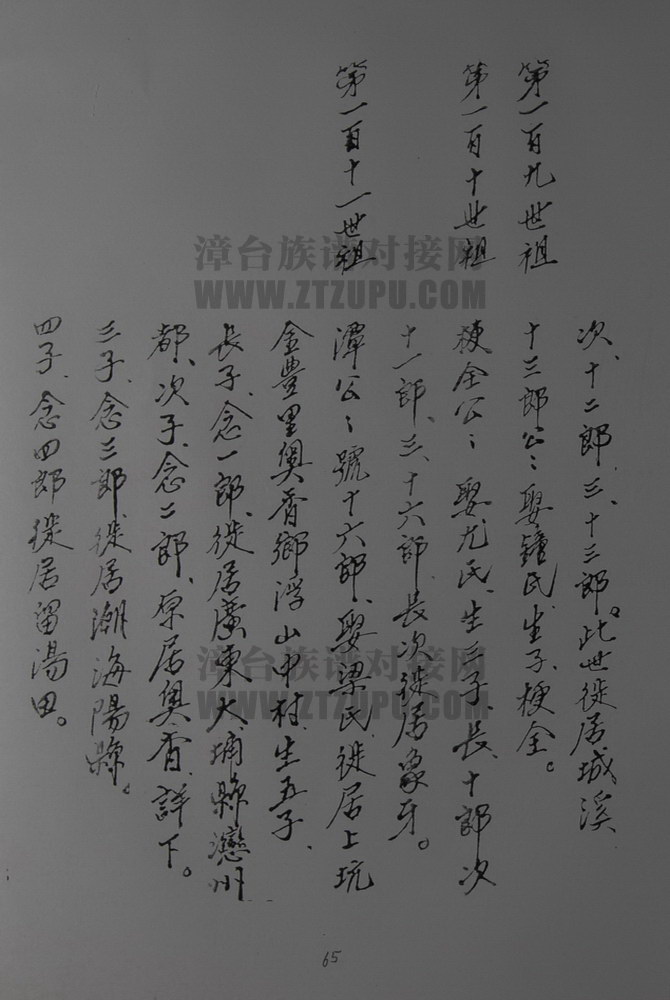 次、十二郎、三、十三郎。此世徙居城溪
第一百九世祖 十三郎公：娶鍾氏、生子、梗全。
第一百十世祖 梗全公：娶尤氏、生三子、長、十郎次
十一郎、三、十六郎、長次徙居象牙。
第一百十一世祖 潭公：號十六郎、娶梁氏、徙居上坑
金豊里奥杳鄉浮山中村、生五子、
長子、念一郎、徙居廣東大埔縣戀州
都、次子、念二郎、原居奥杳、詳下。
三子、念三郎、徙居潮海陽縣。
四子、念四郎徙居留湯田。
65
漳台族谱对接网
WWW.ZTZUPU.COM
漳台族谱对接网
WWW.ZTZUPU.COM